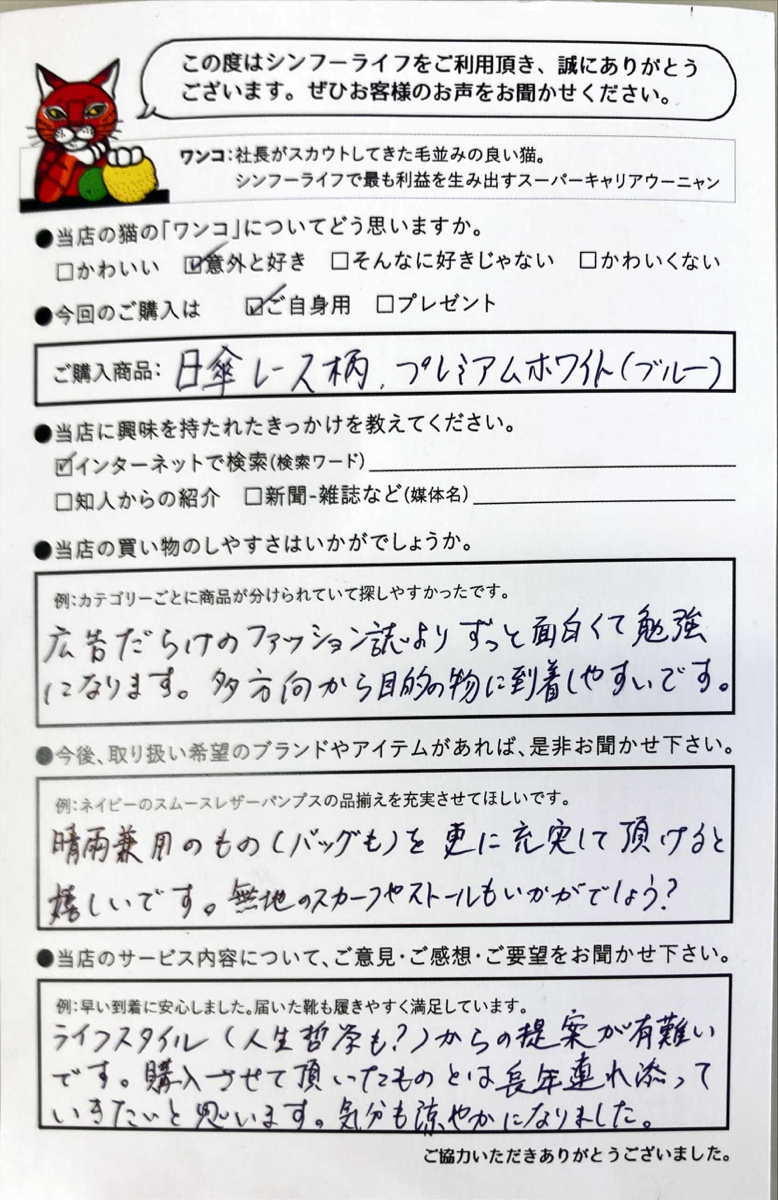 この度はシンフーライフをご利用頂き、誠にありがとう
ございます。ぜひお客様のお声をお聞かせください。
ワンコ：社長がスカウトしてきた毛並みの良い猫。
シンフーライフで最も利益を生み出すスーパーキャリアウーニャン
●当店の猫の「ワンコ」についてどう思いますか。
□かわいい ☑意外と好き □そんなに好きじゃない □かわいくない
●今回のご購入は ☑ご自身用 □プレゼント
ご購入商品： 日傘レース柄、プレミアムホワイト（ブルー）
●当店に興味を持たれたきっかけを教えてください。
☑インターネットで検索（検索ワード）
□知人からの紹介 □新聞-雑誌など（媒体名）
●当店の買い物のしやすさはいかがでしょうか。
例：カテゴリーごとに商品が分けられていて探しやすかったです。
広告だらけのファッション誌よりずっと面白くて勉強
になります。多方向から目的の物に到着しやすいです。
●今後、取り扱い希望のブランドやアイテムがあれば、是非お聞かせ下さい。
例：ネイビーのスムースレザーパンプスの品揃えを充実させてほしいです。
晴雨兼用のもの（バッグも）を更に充実して頂けると
嬉しいです。無地のスカーフやストールもいかがでしょう？
●当店のサービス内容について、ご意見・ご感想・ご要望をお聞かせ下さい。
例：早い到着に安心しました。届いた靴も履きやすく満足しています。
ライフスタイル（人生哲学も？）からの提案が有難い
です。購入させて頂いたものとは長年連れ添って
いきたいと思います。気分も涼やかになりました。
ご協力いただきありがとうございました。